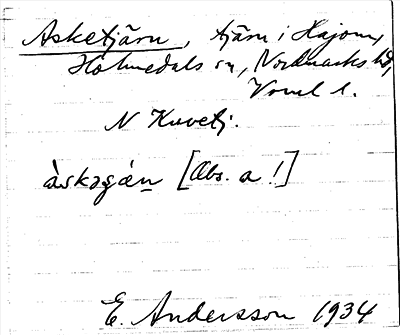 Asketjärn, tjärn i Hajom,
Holmedals sn, Nordmarks hd,
Vrml l.
N Kuvetj.
àskəgán [Obs. a!]
E. Andersson 1934